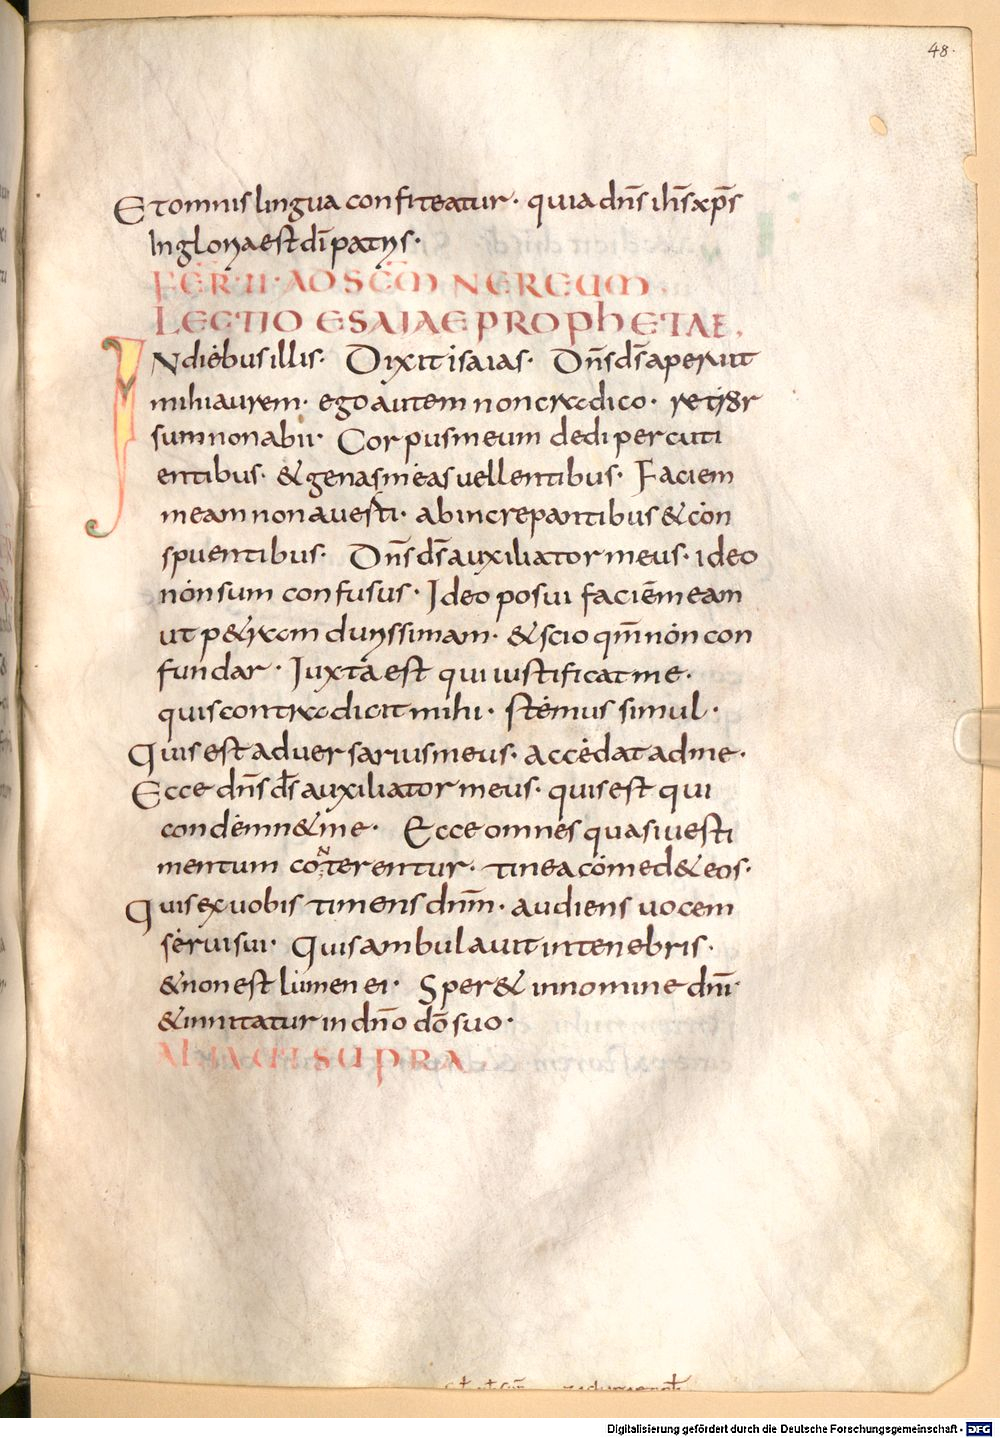 48.
Et omnis lingua confiteatur· quia dn̄s ih̄s xp̄s
In gloria est dī patris·
FER̄·II·AD SC̄M NEREUM.
LECTIO ESAIAE PROPHETAE.
INdiebus illis· Dixit isaias· Dn̄s ds̄ aperuit
mihi aurem· ego autem non contradico· retror
sum non abii· Corpus meum dedi percuti
entibus· & genas meas uellentibus· Faciem
meam non auerti· ab increpantibus & con
spuentibus· Dn̄s ds̄ auxiliator meus· ideo
non sum confusus· Ideo posui faciem meam
ut p&ram durissimam· & scio qm̄ non con
fundar· Iuxta est qui iustificat me·
quis contradicit mihi· stemus simul·
Quis est aduersarius meus· accedat ad me·
Ecce dn̄s ds̄ auxiliator meus· quis est qui
condemn& me· Ecce omnes quasi uesti
mentum conterentur· tinea comed& eos·
Quis ex uobis timens dnm̄· audiens uocem
serui sui· Quis ambulauit in tenebris·
& non est lumen ei· Sper& in nomine dnī·
& innitatur in dn̄o dō suo·
SUPRA
Digitalisierung gefördert durch die Deutsche Forschungsgemeinschaft - DFG